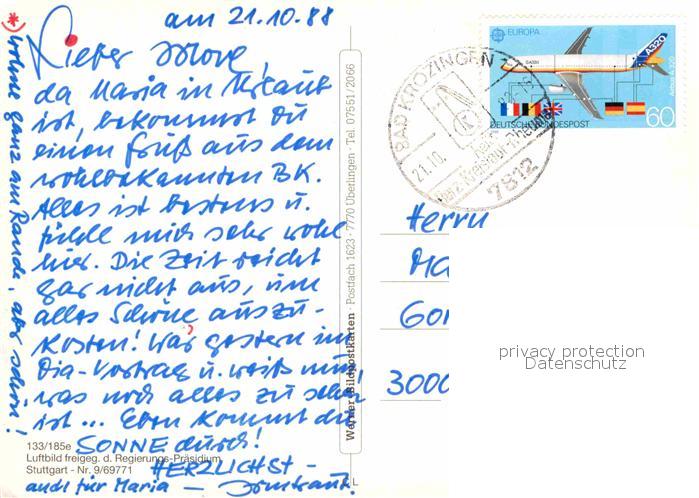 am 21.10.88
*) wohne ganz am Rande, aber schön!
Lieber
da Maria in Urlaub
ist, bekommst Du
einen Gruß aus dem
wohlbekannten B K.
Alles ist bestens u.
fühle mich sehr wohl
hier. Die Zeit reicht
gar nicht aus, um
alles Schöne auszu-
kosten! War gestern im
Dia-Vortrag u. weiß nun,
was noch alles zu sehen
ist ... Eben kommt die
SONNE durch!
HERZLICHST -
auch für Maria -
133/185e
Luftbild freigeg. d. Regierungs-Präsidium
Stuttgart - Nr. 9/69771
Werner-Bildpostkarten · Postfach 1623 · 7770 Überlingen · Tel. 07551/2066
L
BAD KROZINGEN 1
21.10.
7812
EUROPA
A320
Airbus A 320
DEUTSCHE BUNDESPOST
60
Herrn
Ma
Gor
3000
privacy protection
Datenschutz